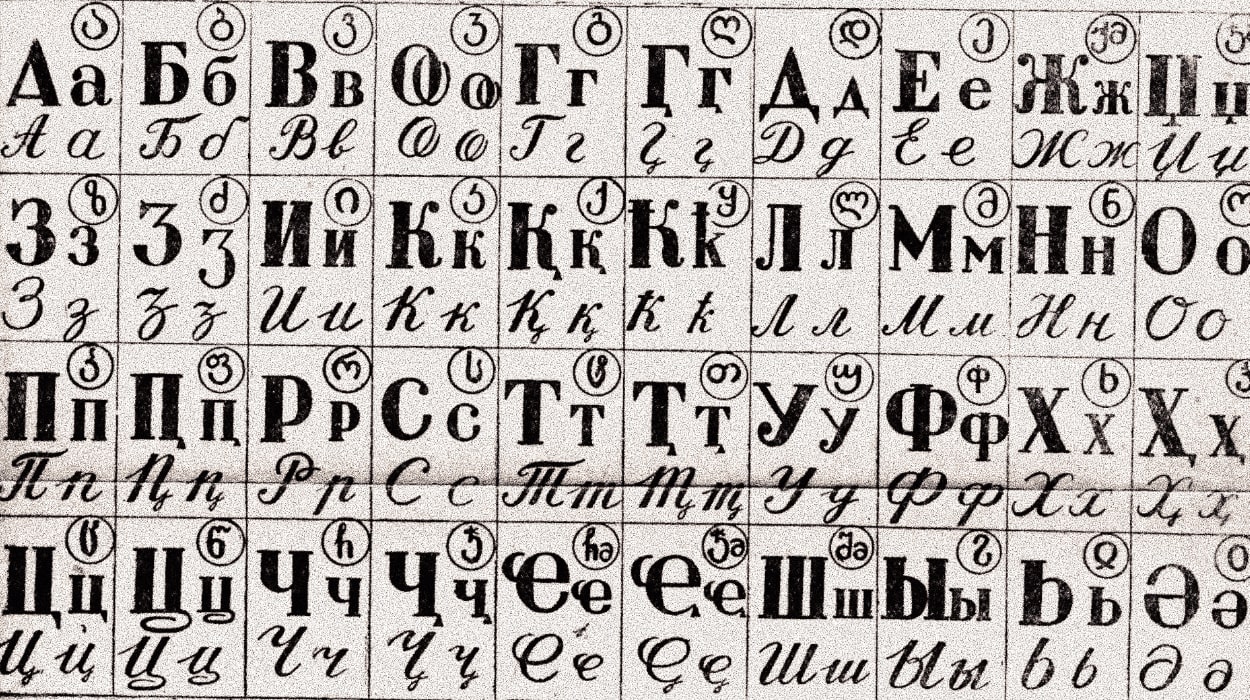 ა ბ ვ ჳ გ ღ დ ე ჟა
Аа Бб Вв Ѹѹ Гг Ӷӷ Дд Ее Жж Џџ
Аа Бб Вв Ѹѹ Гг Ӷӷ Дд Ее Жж Џџ
ზ ძ ი კ ქ ყ ლ მ ნ ო
Зз Ʒʒ Ии Кк Ққ Ҟҟ Лл Мм Нн Оо
Зз Ʒʒ Ии Кк Ққ Ҟҟ Лл Мм Нн Оо
პ ფ რ ს ტ თ უ ჶ ხ
Пп Ԥԥ Рр Сс Тт Ҭҭ Уу Фф Хх Ҳҳ
Пп Ԥԥ Рр Сс Тт Ҭҭ Уу Фф Хх Ҳҳ
ც წ ჩ ჭ ჩა ჭა შა
Цц Чч Ҷҷ Ҽҽ Ҿҿ Шш Ыы Ьь Әә
Цц Чч Ҷҷ Ҽҽ Ҿҿ Шш Ыы Ьь Әә